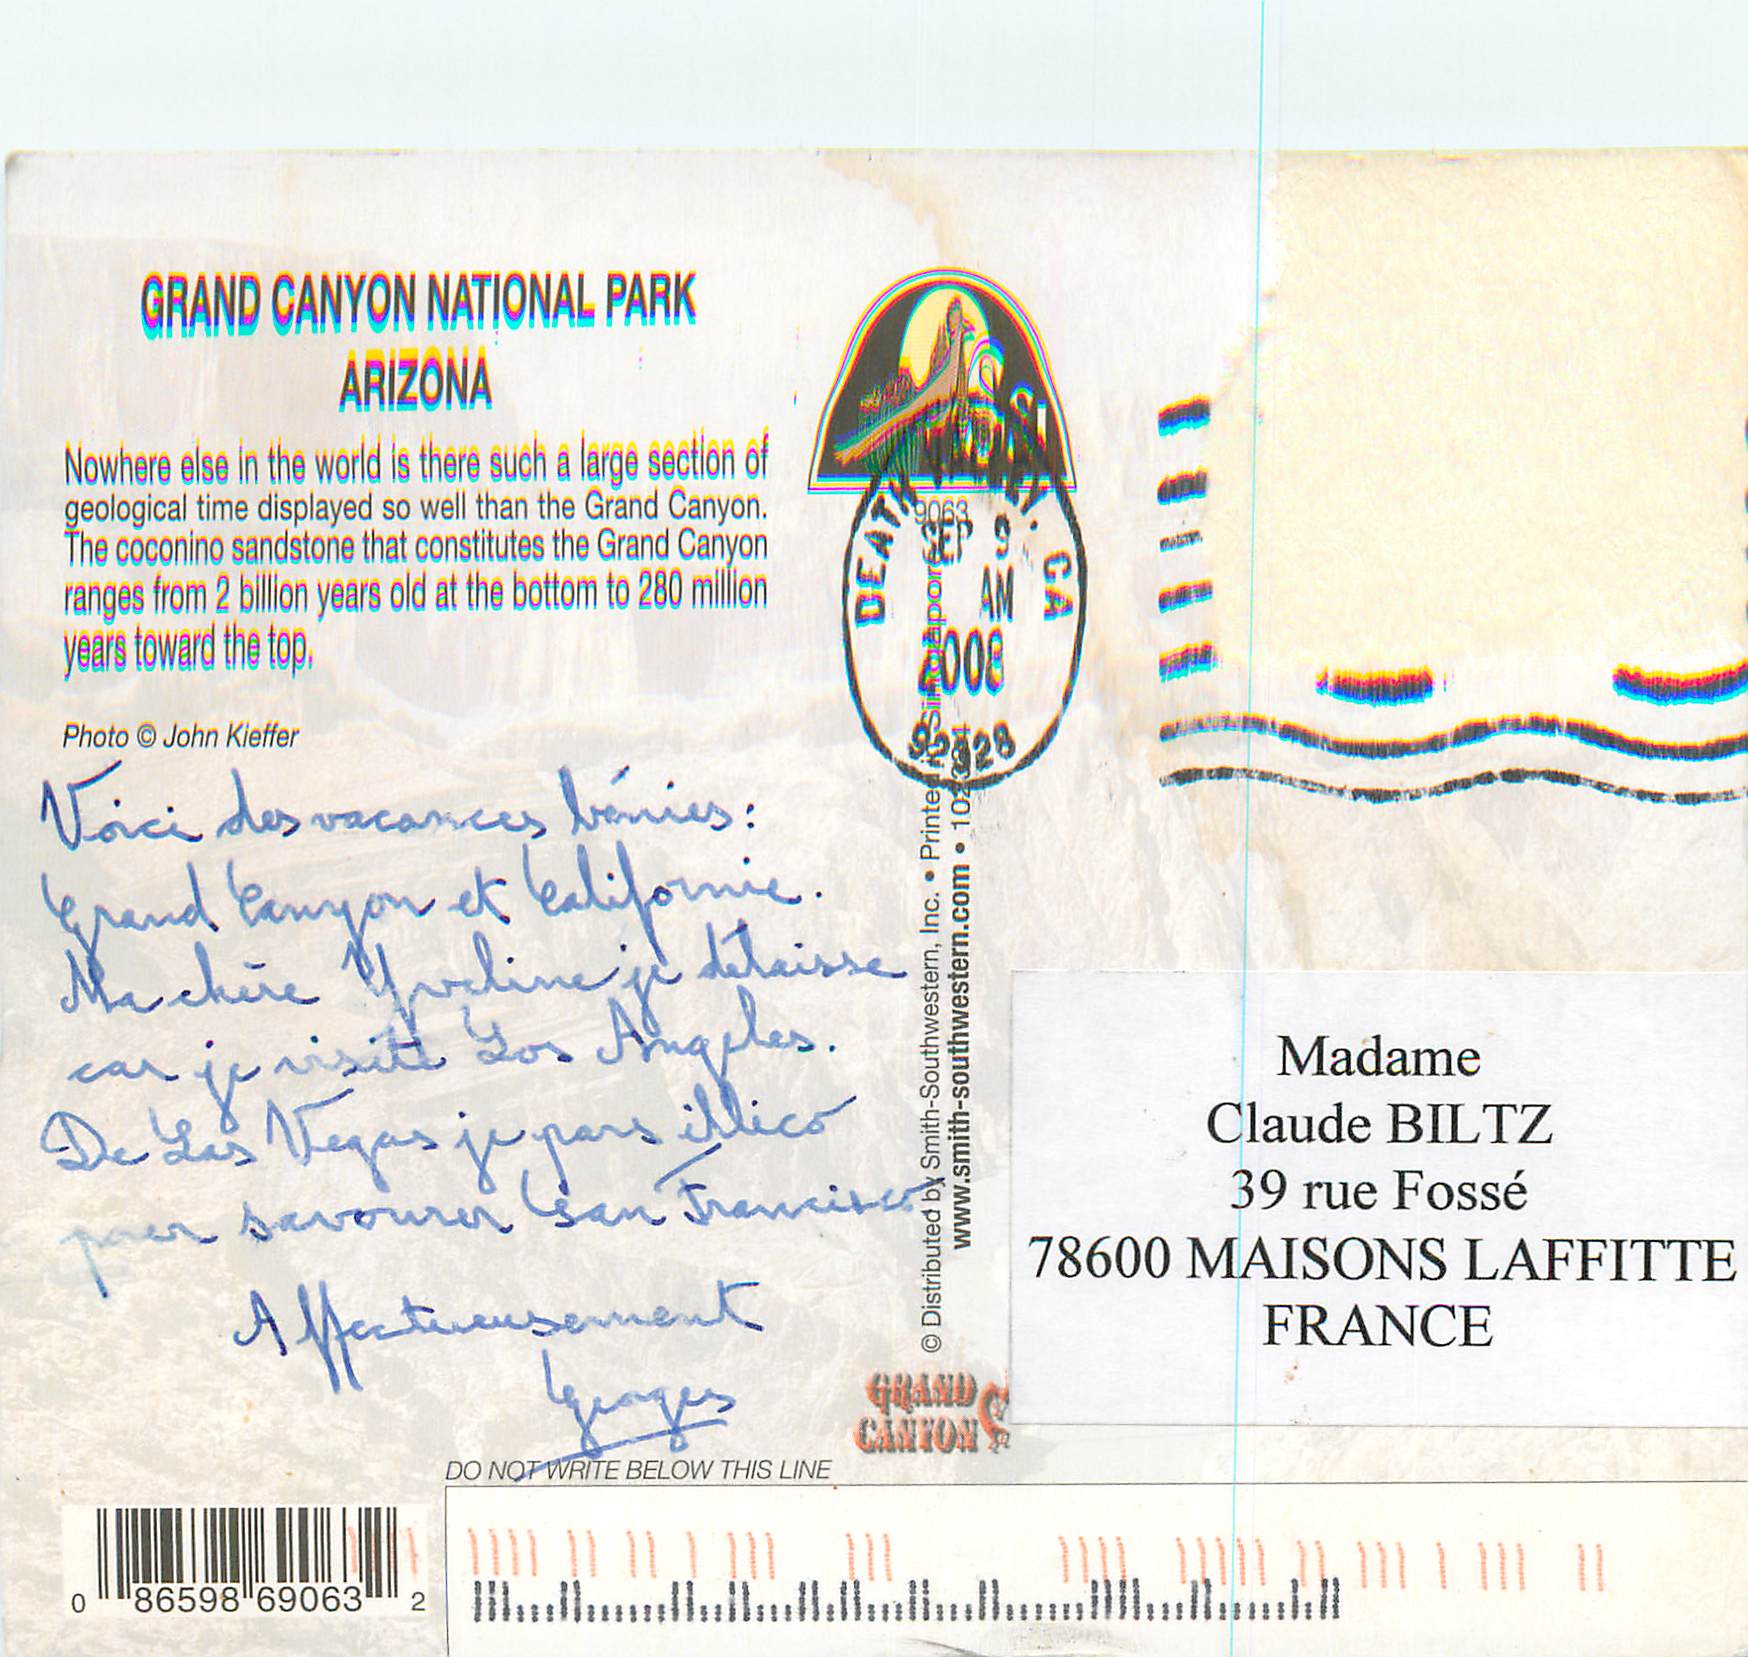 GRAND CANYON NATIONAL PARK
ARIZONA
Nowhere else in the world is there such a large section of
geological time displayed so well than the Grand Canyon.
The coconino sandstone that constitutes the Grand Canyon
ranges from 2 billion years old at the bottom to 280 million
years toward the top.
Photo © John Kieffer
Voici des vacances bénies :
Grand Canyon et Californie.
Ma chère Yveline je délaisse
car je visite Los Angeles.
De Las Vegas je pars illico
pour savourer San Francisco
Affectueusement
Georges
DO NOT WRITE BELOW THIS LINE
0 86598 69063 2
9063
DEATH VALLEY, CA
SEP 9
AM
2008
92328
© Distributed by Smith-Southwestern, Inc. • Printed in Singapore
www.smith-southwestern.com •
GRAND
CANYON
Madame
Claude BILTZ
39 rue Fossé
78600 MAISONS LAFFITTE
FRANCE